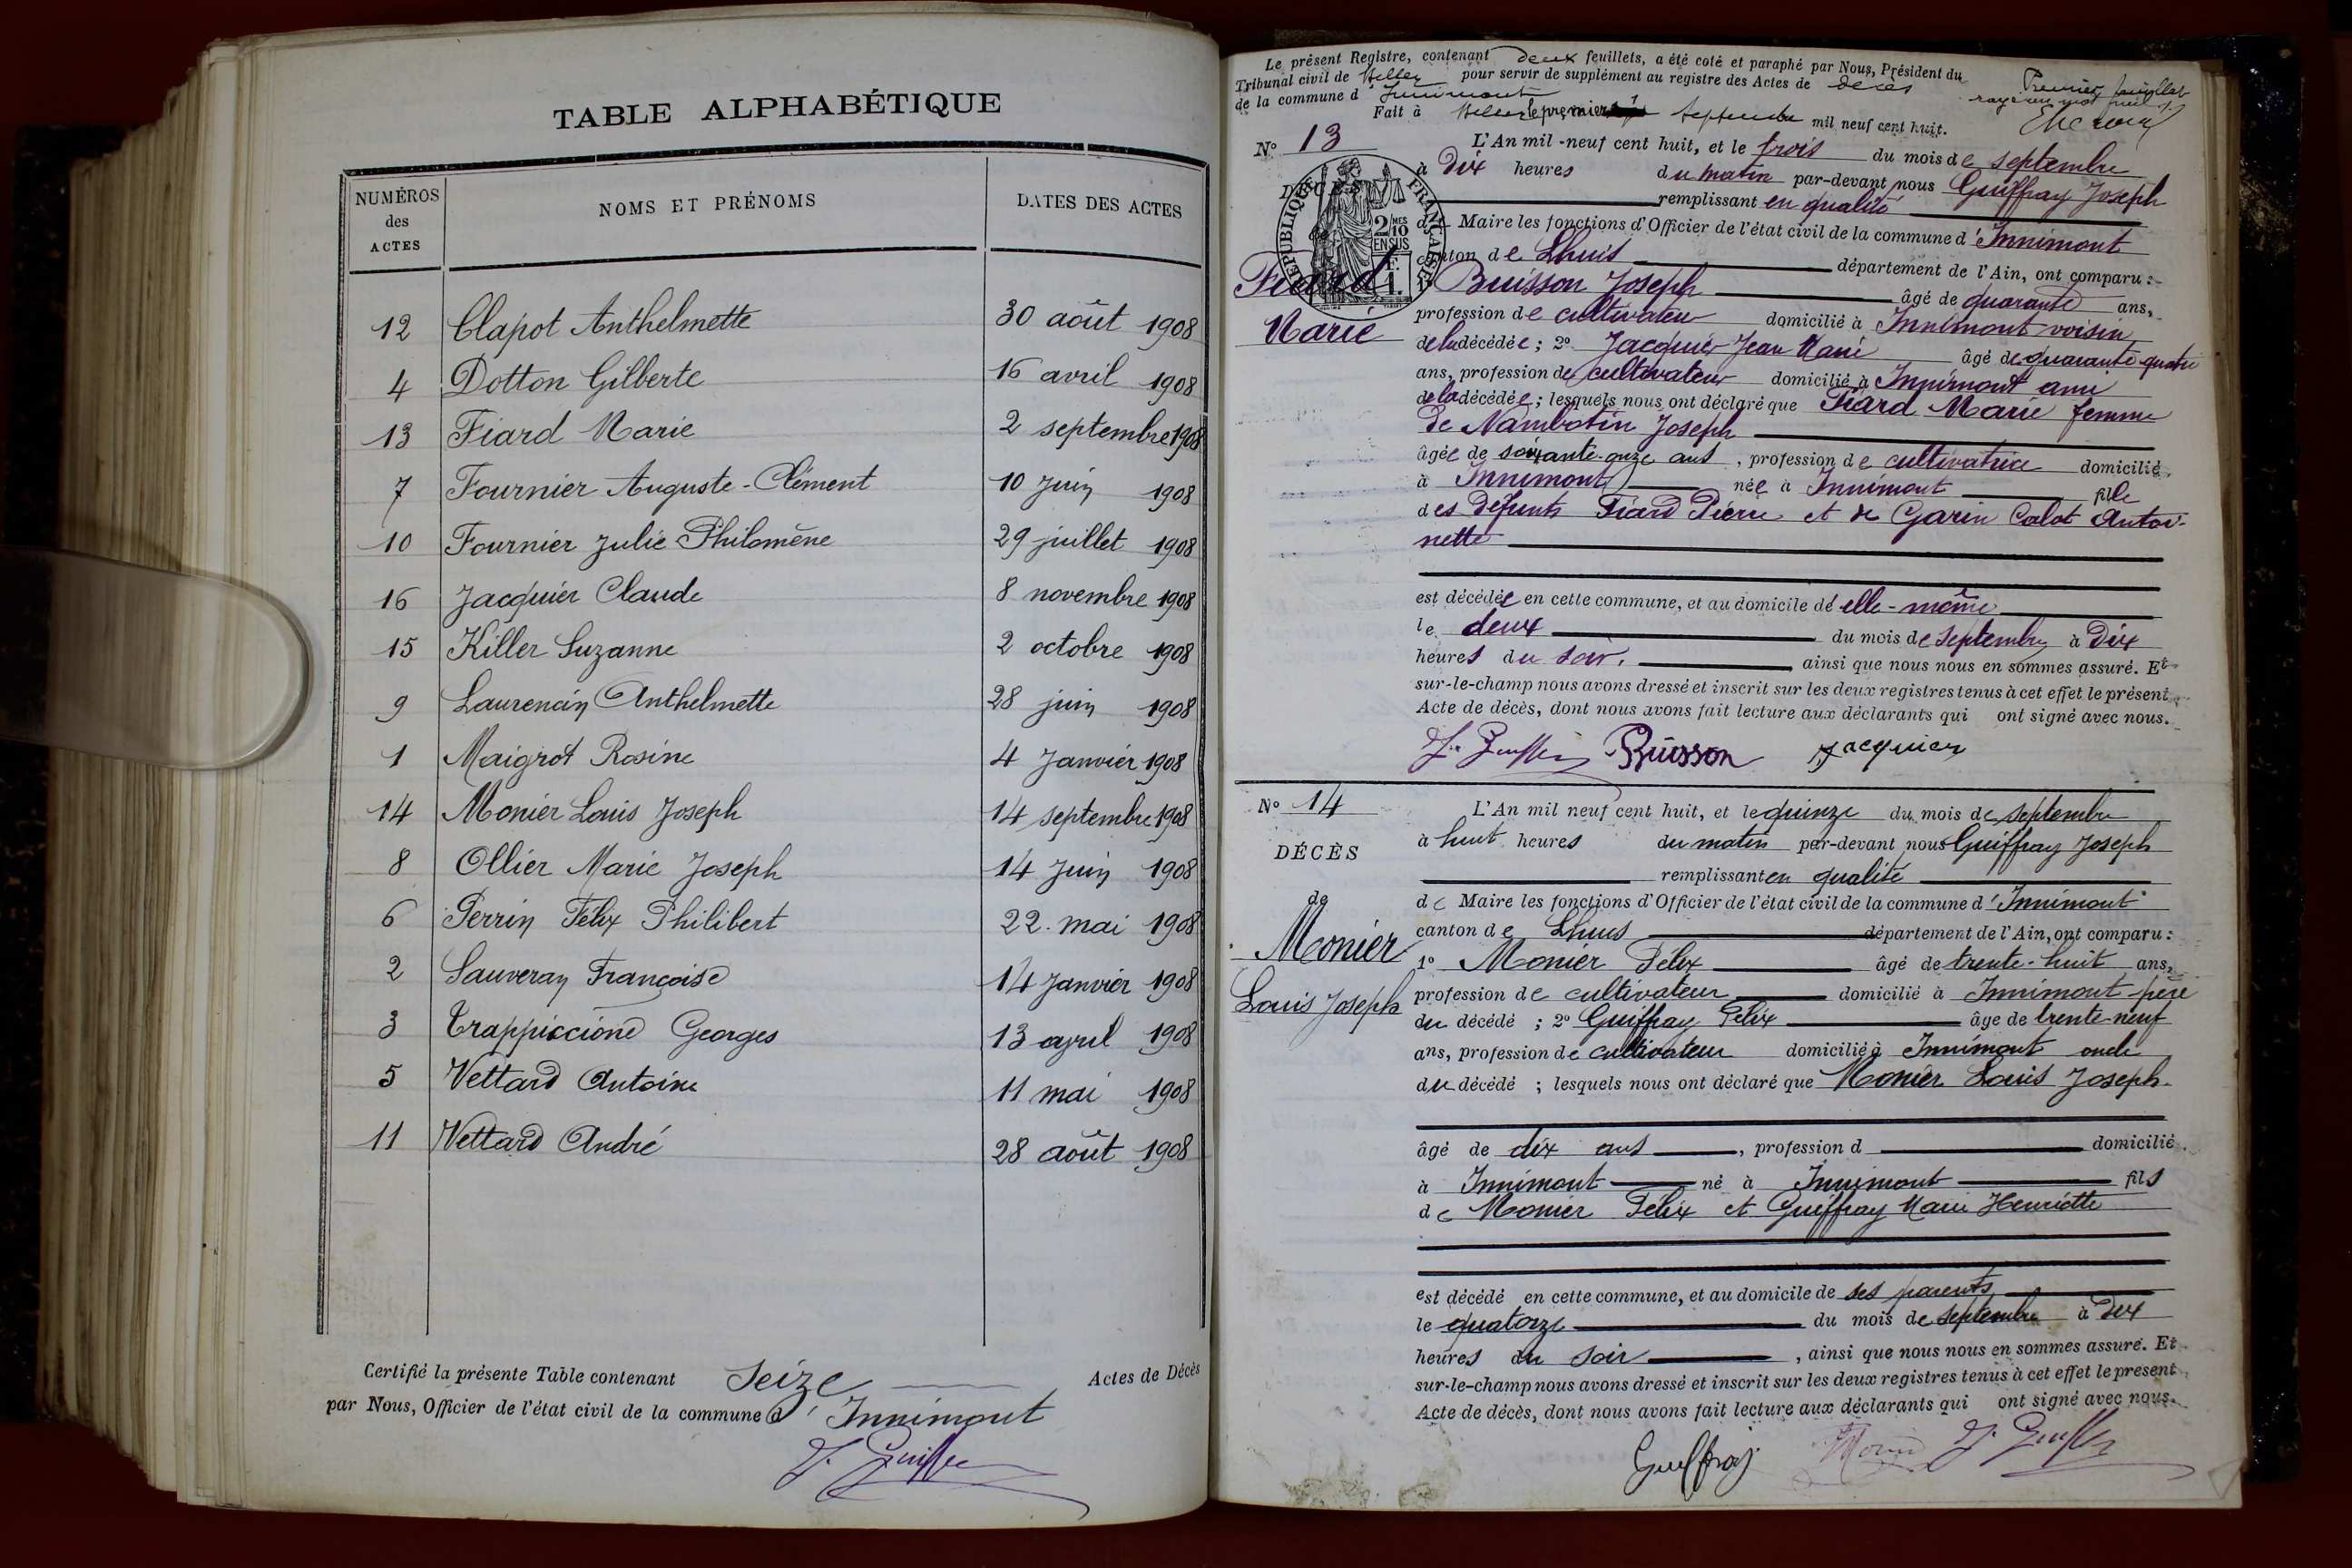 TABLE ALPHABÉTIQUE
NUMÉROS des ACTES
NOMS ET PRÉNOMS
DATES DES ACTES
12 Clapot Anthelmette 30 août 1908
4 Dotton Gilberte 16 avril 1908
13 Fiard Marie 2 septembre 1908
7 Fournier Auguste-Clément 10 Juin 1908
10 Fournier Julie Philomène 29 juillet 1908
16 Jacquier Claude 8 novembre 1908
15 Killer Suzanne 2 octobre 1908
9 Laurencin Anthelmette 28 juin 1908
1 Maigrot Rosine 4 Janvier 1908
14 Monier Louis Joseph 14 septembre 1908
8 Ollier Marie Joseph 14 Juin 1908
6 Perrin Félix Philibert 22 mai 1908
2 Sauveran Françoise 14 Janvier 1908
3 Trappiccione Georges 13 avril 1908
5 Vettard Antoine 11 mai 1908
11 Vettard André 28 août 1908
Certifié la présente Table contenant Seize Actes de Décès
par Nous, Officier de l'état civil de la commune d'Innimont
Le présent Registre, contenant deux feuillets, a été coté et paraphé par Nous, Président du
Tribunal civil de Belley pour servir de supplément au registre des Actes de décès
de la commune d'Innimont
Fait à Belley le premier septembre mil neuf cent huit.
Premier feuillet
N° 13
DÉCÈS
de
Fiard
Marie
RÉPUBLIQUE FRANÇAISE
L'An mil-neuf cent huit, et le trois du mois de septembre
à Dix heures du matin par-devant nous Guiffray Joseph
remplissant en qualité
de Maire les fonctions d'Officier de l'état civil de la commune d'Innimont
canton de Lhuis département de l'Ain, ont comparu :
1° Buisson Joseph âgé de quarante ans,
profession de cultivateur domicilié à Innimont voisin
de la décédée ; 2° Jacquier Jean Marie âgé de quarante-quatre
ans, profession de cultivateur domicilié à Innimont ami
de la décédée ; lesquels nous ont déclaré que Fiard Marie femme
de Nambotin Joseph
âgée de soixante-onze ans, profession de cultivatrice domicilié
à Innimont née à Innimont fille
des défunts Fiard Pierre et de Garin Calot Antoi-
nette
est décédée en cette commune, et au domicile d'elle-même
le deux du mois de septembre à Dix
heures du soir. ainsi que nous nous en sommes assuré. Et
sur-le-champ nous avons dressé et inscrit sur les deux registres tenus à cet effet le présent
Acte de décès, dont nous avons fait lecture aux déclarants qui ont signé avec nous.
Buisson Jacquier
N° 14
DÉCÈS
de
Monier
Louis Joseph
L'An mil neuf cent huit, et le quinze du mois de septembre
à huit heures du matin par-devant nous Guiffray Joseph
remplissant en qualité
de Maire les fonctions d'Officier de l'état civil de la commune d'Innimont
canton de Lhuis département de l'Ain, ont comparu :
1° Monier Félix âgé de trente-huit ans,
profession de cultivateur domicilié à Innimont père
du décédé ; 2° Guiffray Félix âge de trente-neuf
ans, profession de cultivateur domicilié à Innimont oncle
du décédé ; lesquels nous ont déclaré que Monier Louis Joseph
âgé de dix ans, profession d domicilié
à Innimont né à Innimont fils
de Monier Félix et Guiffray Marie Henriette
est décédé en cette commune, et au domicile de ses parents
le quatorze du mois de septembre à Dix
heures du soir, ainsi que nous nous en sommes assuré. Et
sur-le-champ nous avons dressé et inscrit sur les deux registres tenus à cet effet le présent
Acte de décès, dont nous avons fait lecture aux déclarants qui ont signé avec nous.
Guiffray